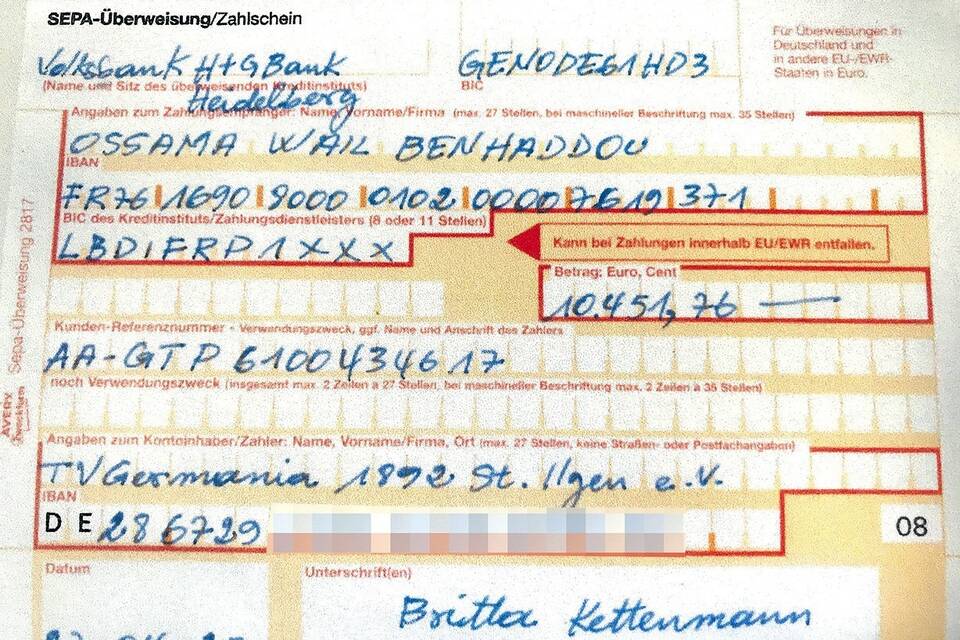 SEPA-Überweisung/Zahlschein
Für Überweisungen in
Deutschland und
in andere EU-/EWR-
Staaten in Euro.
Volksbank H+G Bank GENODE61HD3
(Name und Sitz des überweisenden Kreditinstituts) BIC
Heidelberg
Angaben zum Zahlungsempfänger: Name, Vorname/Firma (max. 27 Stellen, bei maschineller Beschriftung max. 35 Stellen)
OSSAMA WAIL BENHADDOU
IBAN
FR76 1690 9000 0102 0000 7619 371
BIC des Kreditinstituts/Zahlungsdienstleisters (8 oder 11 Stellen)
LBDIFRP1XXX
Kann bei Zahlungen innerhalb EU/EWR entfallen.
Betrag: Euro, Cent
10.451,76
Kunden-Referenznummer - Verwendungszweck, ggf. Name und Anschrift des Zahlers
AA-GTP 61004434617
noch Verwendungszweck (insgesamt max. 2 Zeilen à 27 Stellen, bei maschineller Beschriftung max. 2 Zeilen à 35 Stellen)
Angaben zum Kontoinhaber/Zahler: Name, Vorname/Firma, Ort (max. 27 Stellen, keine Straßen- oder Postfachangaben)
TV Germania 1892 St. Ilgen e.V.
IBAN
DE286729
08
Datum
Unterschrift(en)
Britta Kettenmann
AVERY
Zweckform
Sepa-Überweisung 2817